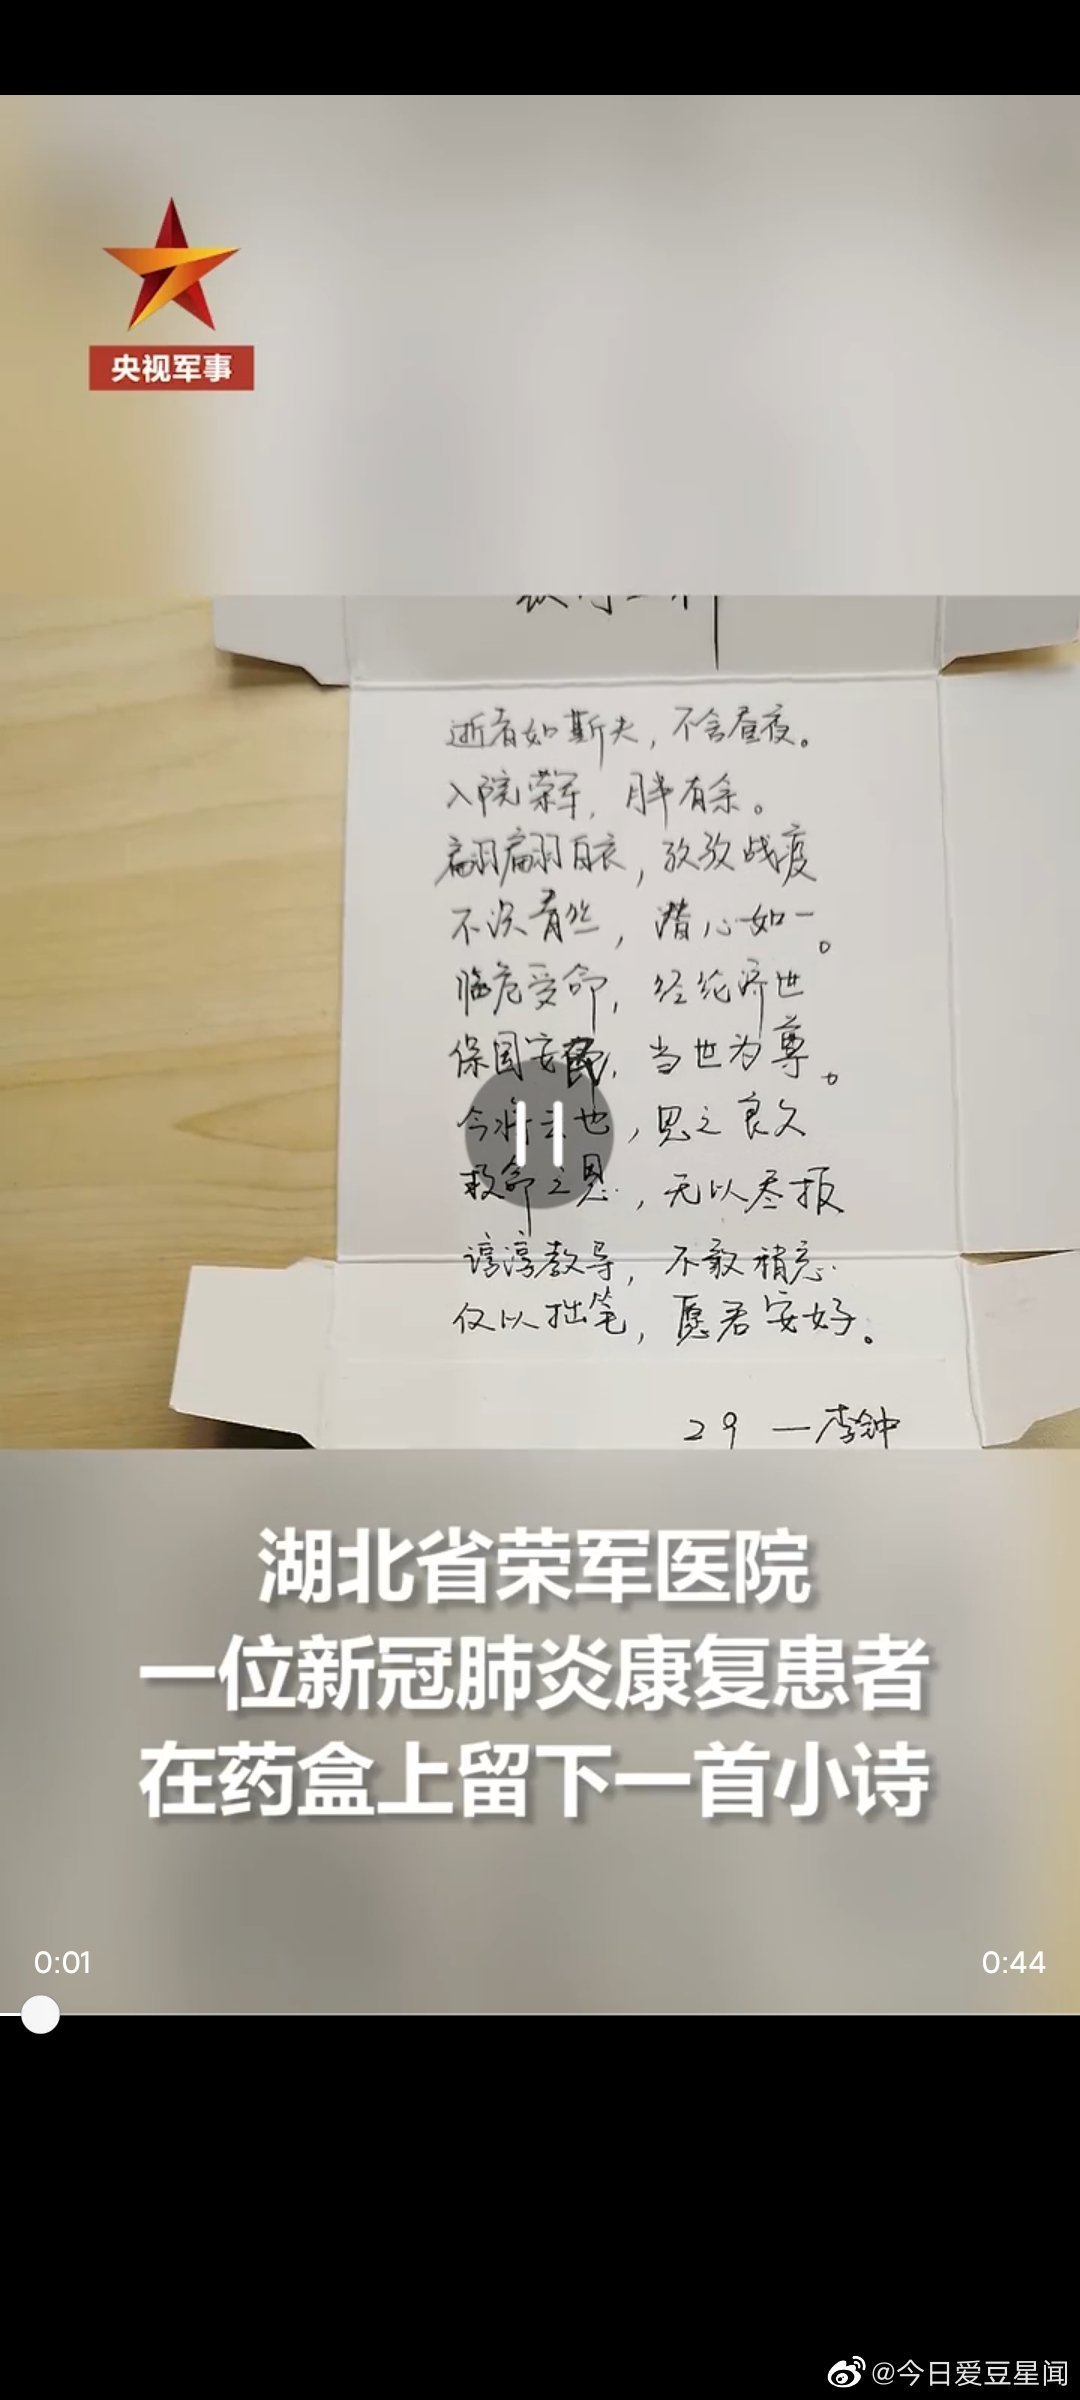 央视军事
逝者如斯夫，不舍昼夜。
入院荣军，月半有余。
翩翩白衣，孜孜战疫
潜心如一。
临危受命，经纶济世
保国安民，当世为尊。
今将去也，思之良久
救命之恩，无以尽报
谆谆教导，不敢稍忘
仅以拙笔，愿君安好。
29 —李钟
湖北省荣军医院
一位新冠肺炎康复患者
在药盒上留下一首小诗
0:01 0:44
@今日爱豆星闻